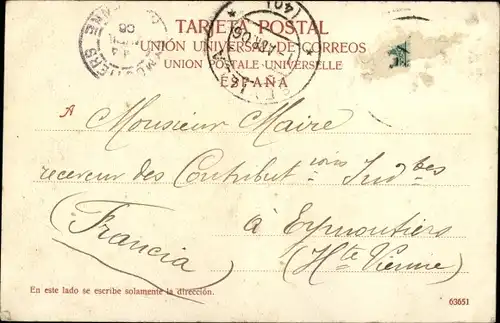 TARJETA POSTAL
UNIÓN UNIVERSAL DE CORREOS
UNION POSTALE UNIVERSELLE
ESPAÑA
A Monsieur Maire
receveur des Contribut.ions Ind.bes
à Eymoutiers
(Francia) (Hte Vienne)
En este lado se escribe solamente la dirección.
63651